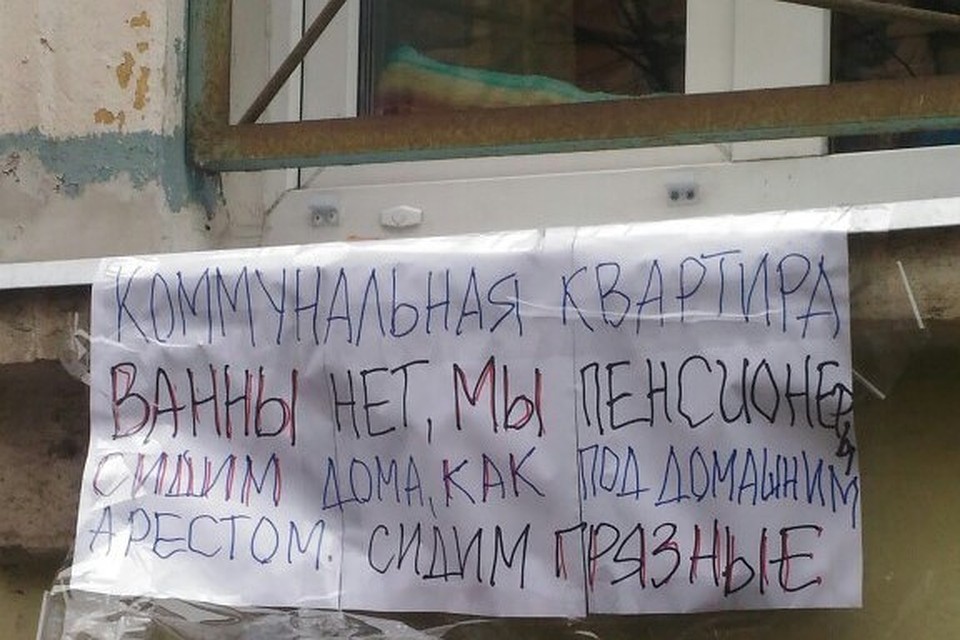 КОММУНАЛЬНАЯ КВАРТИРА
ВАННЫ НЕТ, МЫ ПЕНСИОНЕРЫ
СИДИМ ДОМА, КАК ПОД ДОМАШНИМ
АРЕСТОМ. СИДИМ ГРЯЗНЫЕ